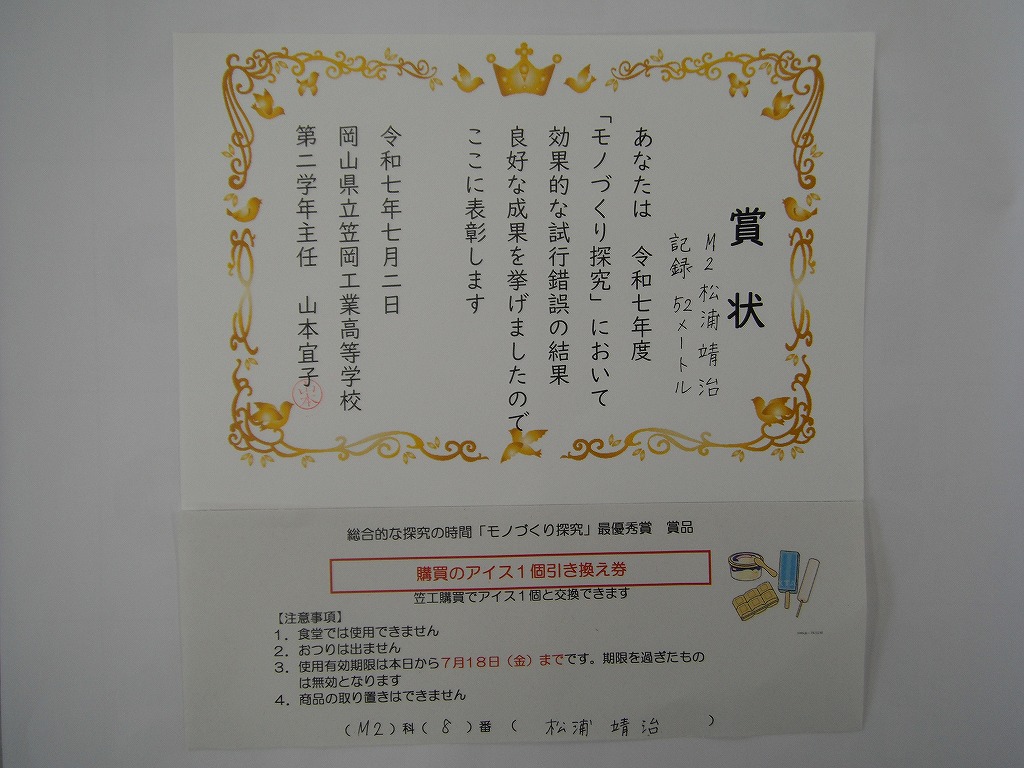 賞状
M2 松浦 靖治
記録 52メートル
あなたは 令和七年度
「モノづくり探究」において
効果的な試行錯誤の結果
良好な成果を挙げましたので
ここに表彰します
令和七年七月二日
岡山県立笠岡工業高等学校
第二学年主任 山本宜子
総合的な探究の時間「モノづくり探究」最優秀賞 賞品
購買のアイス1個引き換え券
笠工購買でアイス1個と交換できます
【注意事項】
1．食堂では使用できません
2．おつりは出ません
3．使用有効期限は本日から7月18日（金）までです。期限を過ぎたもの
は無効となります
4．商品の取り置きはできません
（M2）科（8）番（ 松浦 靖治 ）